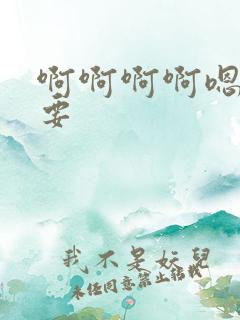 啊啊啊啊嗯
要
我不是妖兒
未经同意禁止转载